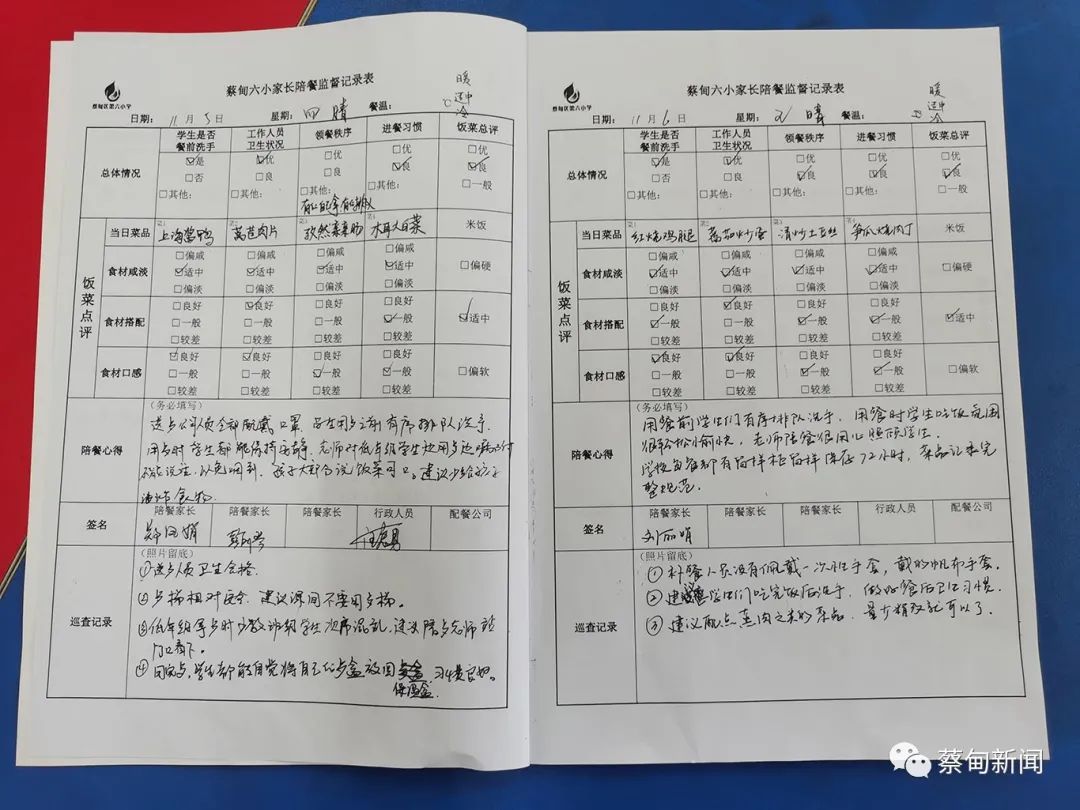 蔡甸区第六小学
蔡甸六小家长陪餐监督记录表
日期： 11月5日 星期： 四 晴 餐温： ℃ 暖 适中 冷
学生是否餐前洗手 工作人员卫生状况 领餐秩序 进餐习惯 饭菜总评
总体情况
☑是 ☑优 □优 □优 □优
□否 □良 □良 ☑良 ☑良
□其他： □其他： □其他： □其他： □一般
饭菜点评
当日菜品 上海酱鸭 莴苣肉片 孜然亲亲肠 木耳大白菜 米饭
食材咸淡
□偏咸 □偏咸 □偏咸 □偏咸
☑适中 ☑适中 ☑适中 ☑适中 □偏硬
□偏淡 □偏淡 □偏淡 □偏淡
食材搭配
□良好 ☑良好 □良好 □良好
□一般 □一般 □一般 ☑一般 ☑适中
□较差 □较差 □较差 □较差
食材口感
☑良好 ☑良好 □良好 □良好
□一般 □一般 ☑一般 ☑一般 □偏软
□较差 □较差 □较差 □较差
陪餐心得
（务必填写）
送点人员全部佩戴口罩，学生用点前有序排队洗手，
用点时学生都能保持安静，老师对低年级学生
以免呛到，孩子大部分说饭菜可口。建议少给孩子
油炸食物
签名 陪餐家长 陪餐家长 陪餐家长 行政人员 配餐公司
巡查记录
（照片留底）
①送点人员卫生合格。
②点梯相对安全，建议课间不要用点梯。
③低年级拿点时少数班级学生次序混乱，建议陪点老师站
门口看下。
④回完点，学生都能自觉将自己的点盒放回 保温盒，习惯良好。
蔡甸区第六小学
蔡甸六小家长陪餐监督记录表
日期： 11月6日 星期： 五 晴 餐温： ℃ 暖 适中 冷
学生是否餐前洗手 工作人员卫生状况 领餐秩序 进餐习惯 饭菜总评
总体情况
☑是 ☑优 □优 □优 □优
□否 □良 ☑良 ☑良 ☑良
□其他： □其他： □其他： □其他： □一般
饭菜点评
当日菜品 红烧鸡腿 番茄炒蛋 清炒土豆丝 笋瓜烧肉丁 米饭
食材咸淡
□偏咸 □偏咸 □偏咸 □偏咸
☑适中 ☑适中 ☑适中 ☑适中 □偏硬
□偏淡 □偏淡 □偏淡 □偏淡
食材搭配
□良好 ☑良好 □良好 □良好
☑一般 □一般 ☑一般 ☑一般 ☑适中
□较差 □较差 □较差 □较差
食材口感
☑良好 ☑良好 □良好 □良好
□一般 □一般 ☑一般 ☑一般 □偏软
□较差 □较差 □较差 □较差
陪餐心得
（务必填写）
用餐前学生们有序排队洗手，用餐时学生吃饭氛围
很轻松愉快，老师陪餐很用心照顾学生。
学校每餐都有留样柜留样保存72小时，菜品记录完
整规范。
签名 陪餐家长 陪餐家长 陪餐家长 行政人员 配餐公司
刘丽娟
巡查记录
（照片留底）
①补餐人员没有佩戴一次性手套，戴的帆布手套。
②建议学生们吃完饭后洗手，做好餐后卫生习惯。
③建议配点蒸肉之类的菜品，量少精致就可以了。
蔡甸新闻